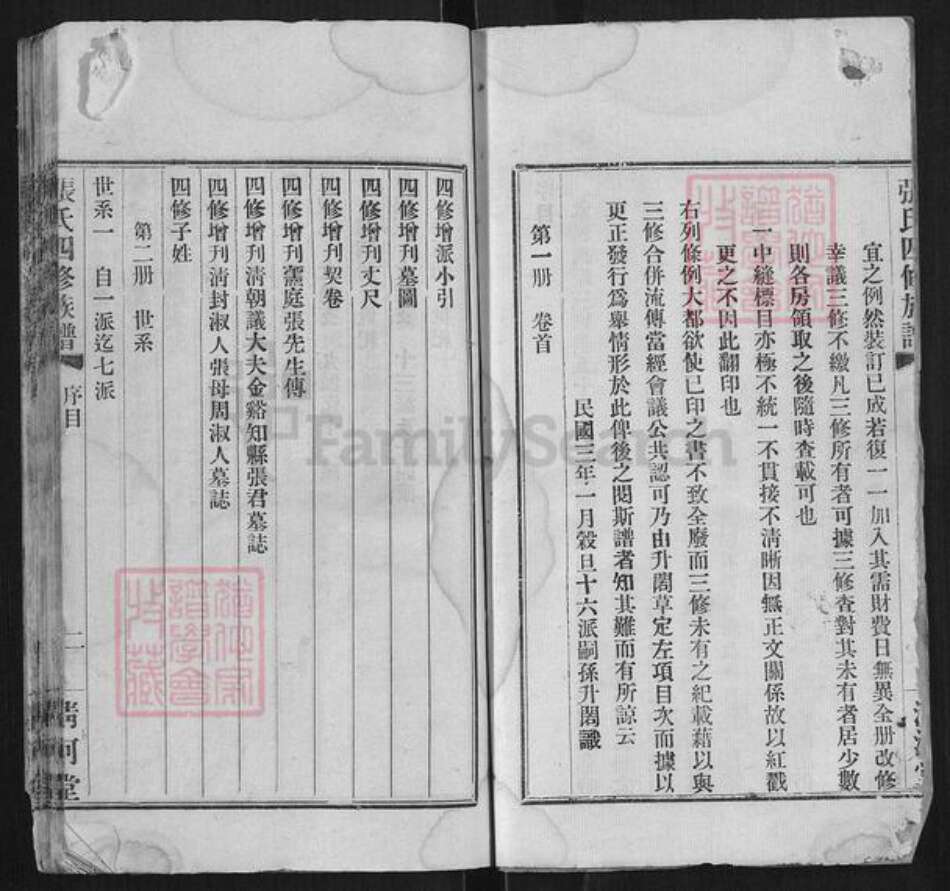 張氏四修族譜
宜之例然裝訂已成若復一一加入其需財費日無異全册改修
幸議三修不繳凡三修所有者可據三修查對其未有者居少數
則各房領取之後隨時查載可也
一中縫標目亦極不統一不貫接不清晰因無正文關係故以紅戳
更之不因此翻印也
右列條例大都欲使已印之書不致全廢而三修未有之紀載藉以與
三修合併流傳當經會議公共認可乃由升閣草定左項目次而據以
更正發行爲舉情形於此俾後之閱斯譜者知其難而有所諒云
民國三年一月穀旦十六派嗣孫升閣識
第一册 卷首
四修增派小引
四修增刋墓圖
四修增刋丈尺
四修增刋契卷
四修增刋靄庭張先生傳
四修增刋清朝議大夫金谿知縣張君墓誌
四修增刋清封淑人張母周淑人墓誌
四修子姓
第二册 世系
世系一 自一派迄七派
張氏四修族譜 序目 二 清河堂
FamilySearch